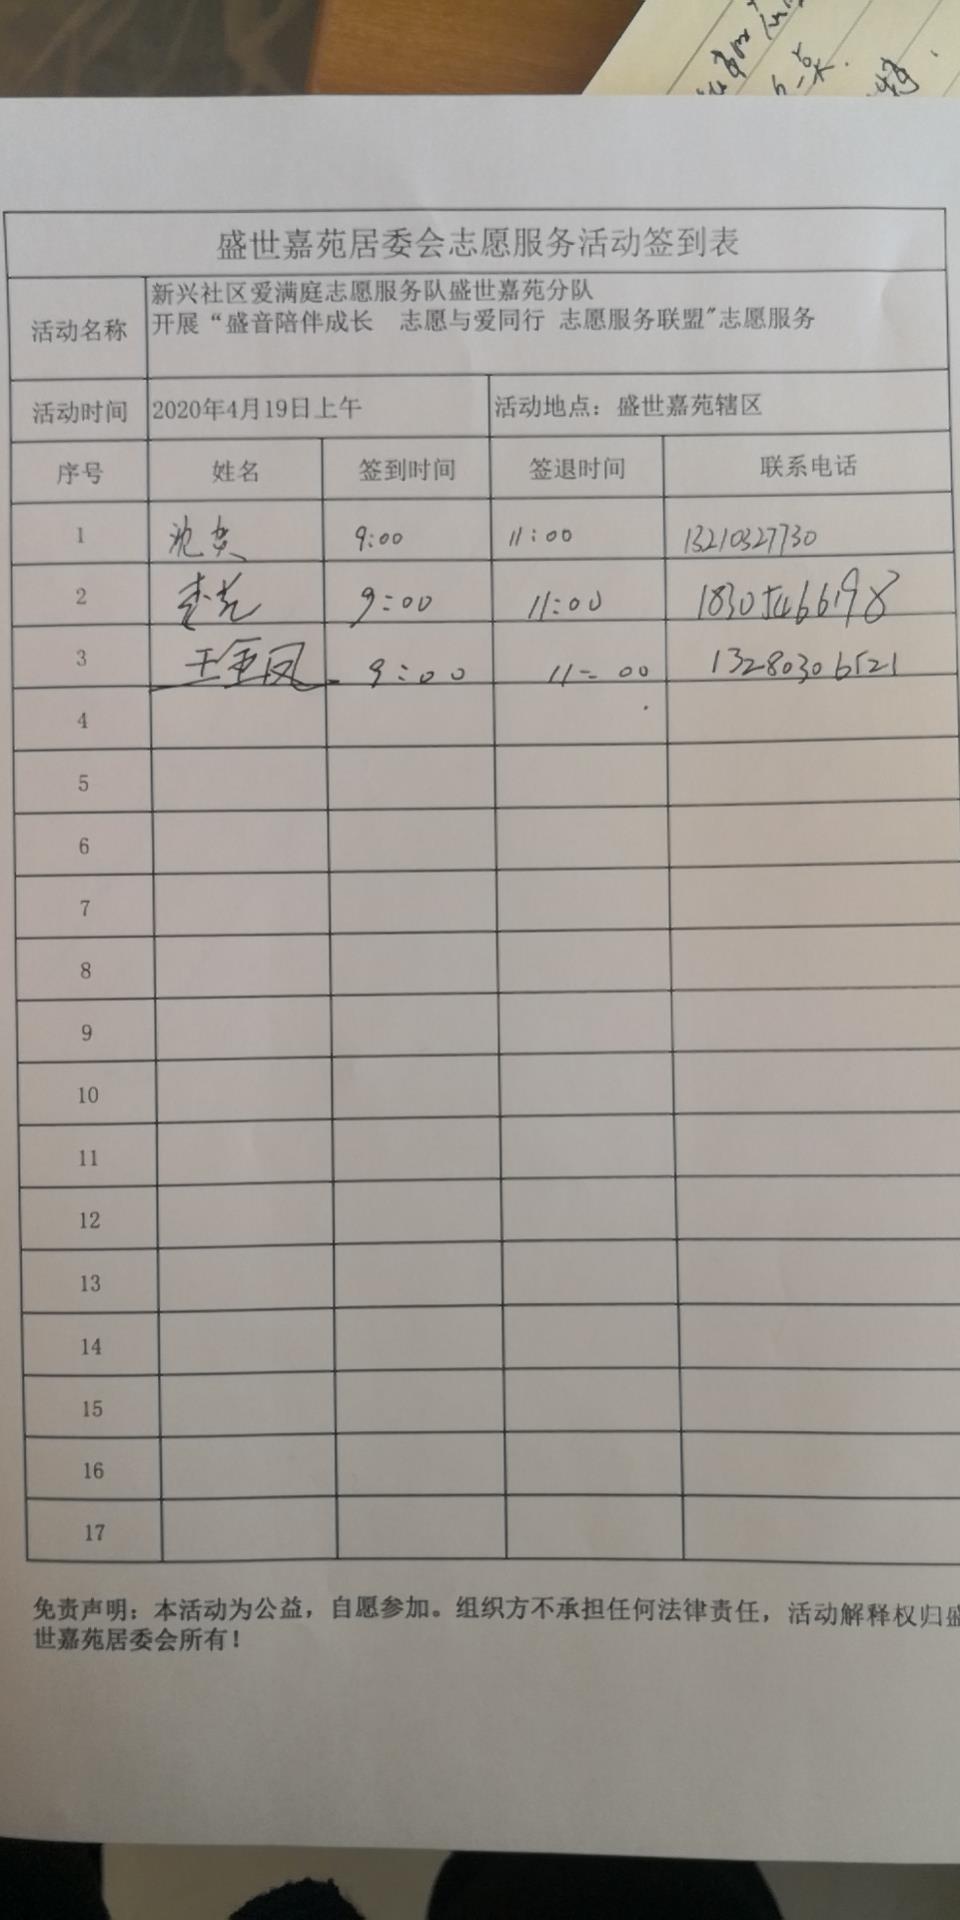 盛世嘉苑居委会志愿服务活动签到表
活动名称 新兴社区爱满庭志愿服务队盛世嘉苑分队
开展“盛音陪伴成长 志愿与爱同行 志愿服务联盟"志愿服务
活动时间 2020年4月19日上午 活动地点：盛世嘉苑辖区
序号 姓名 签到时间 签退时间 联系电话
1 9:00 11:00 13210327730
2 9:00 11:00 18305466198
3 王金凤 9:00 11:00 13280306521
4
5
6
7
8
9
10
11
12
13
14
15
16
17
免责声明：本活动为公益，自愿参加。组织方不承担任何法律责任，活动解释权归盛
世嘉苑居委会所有！